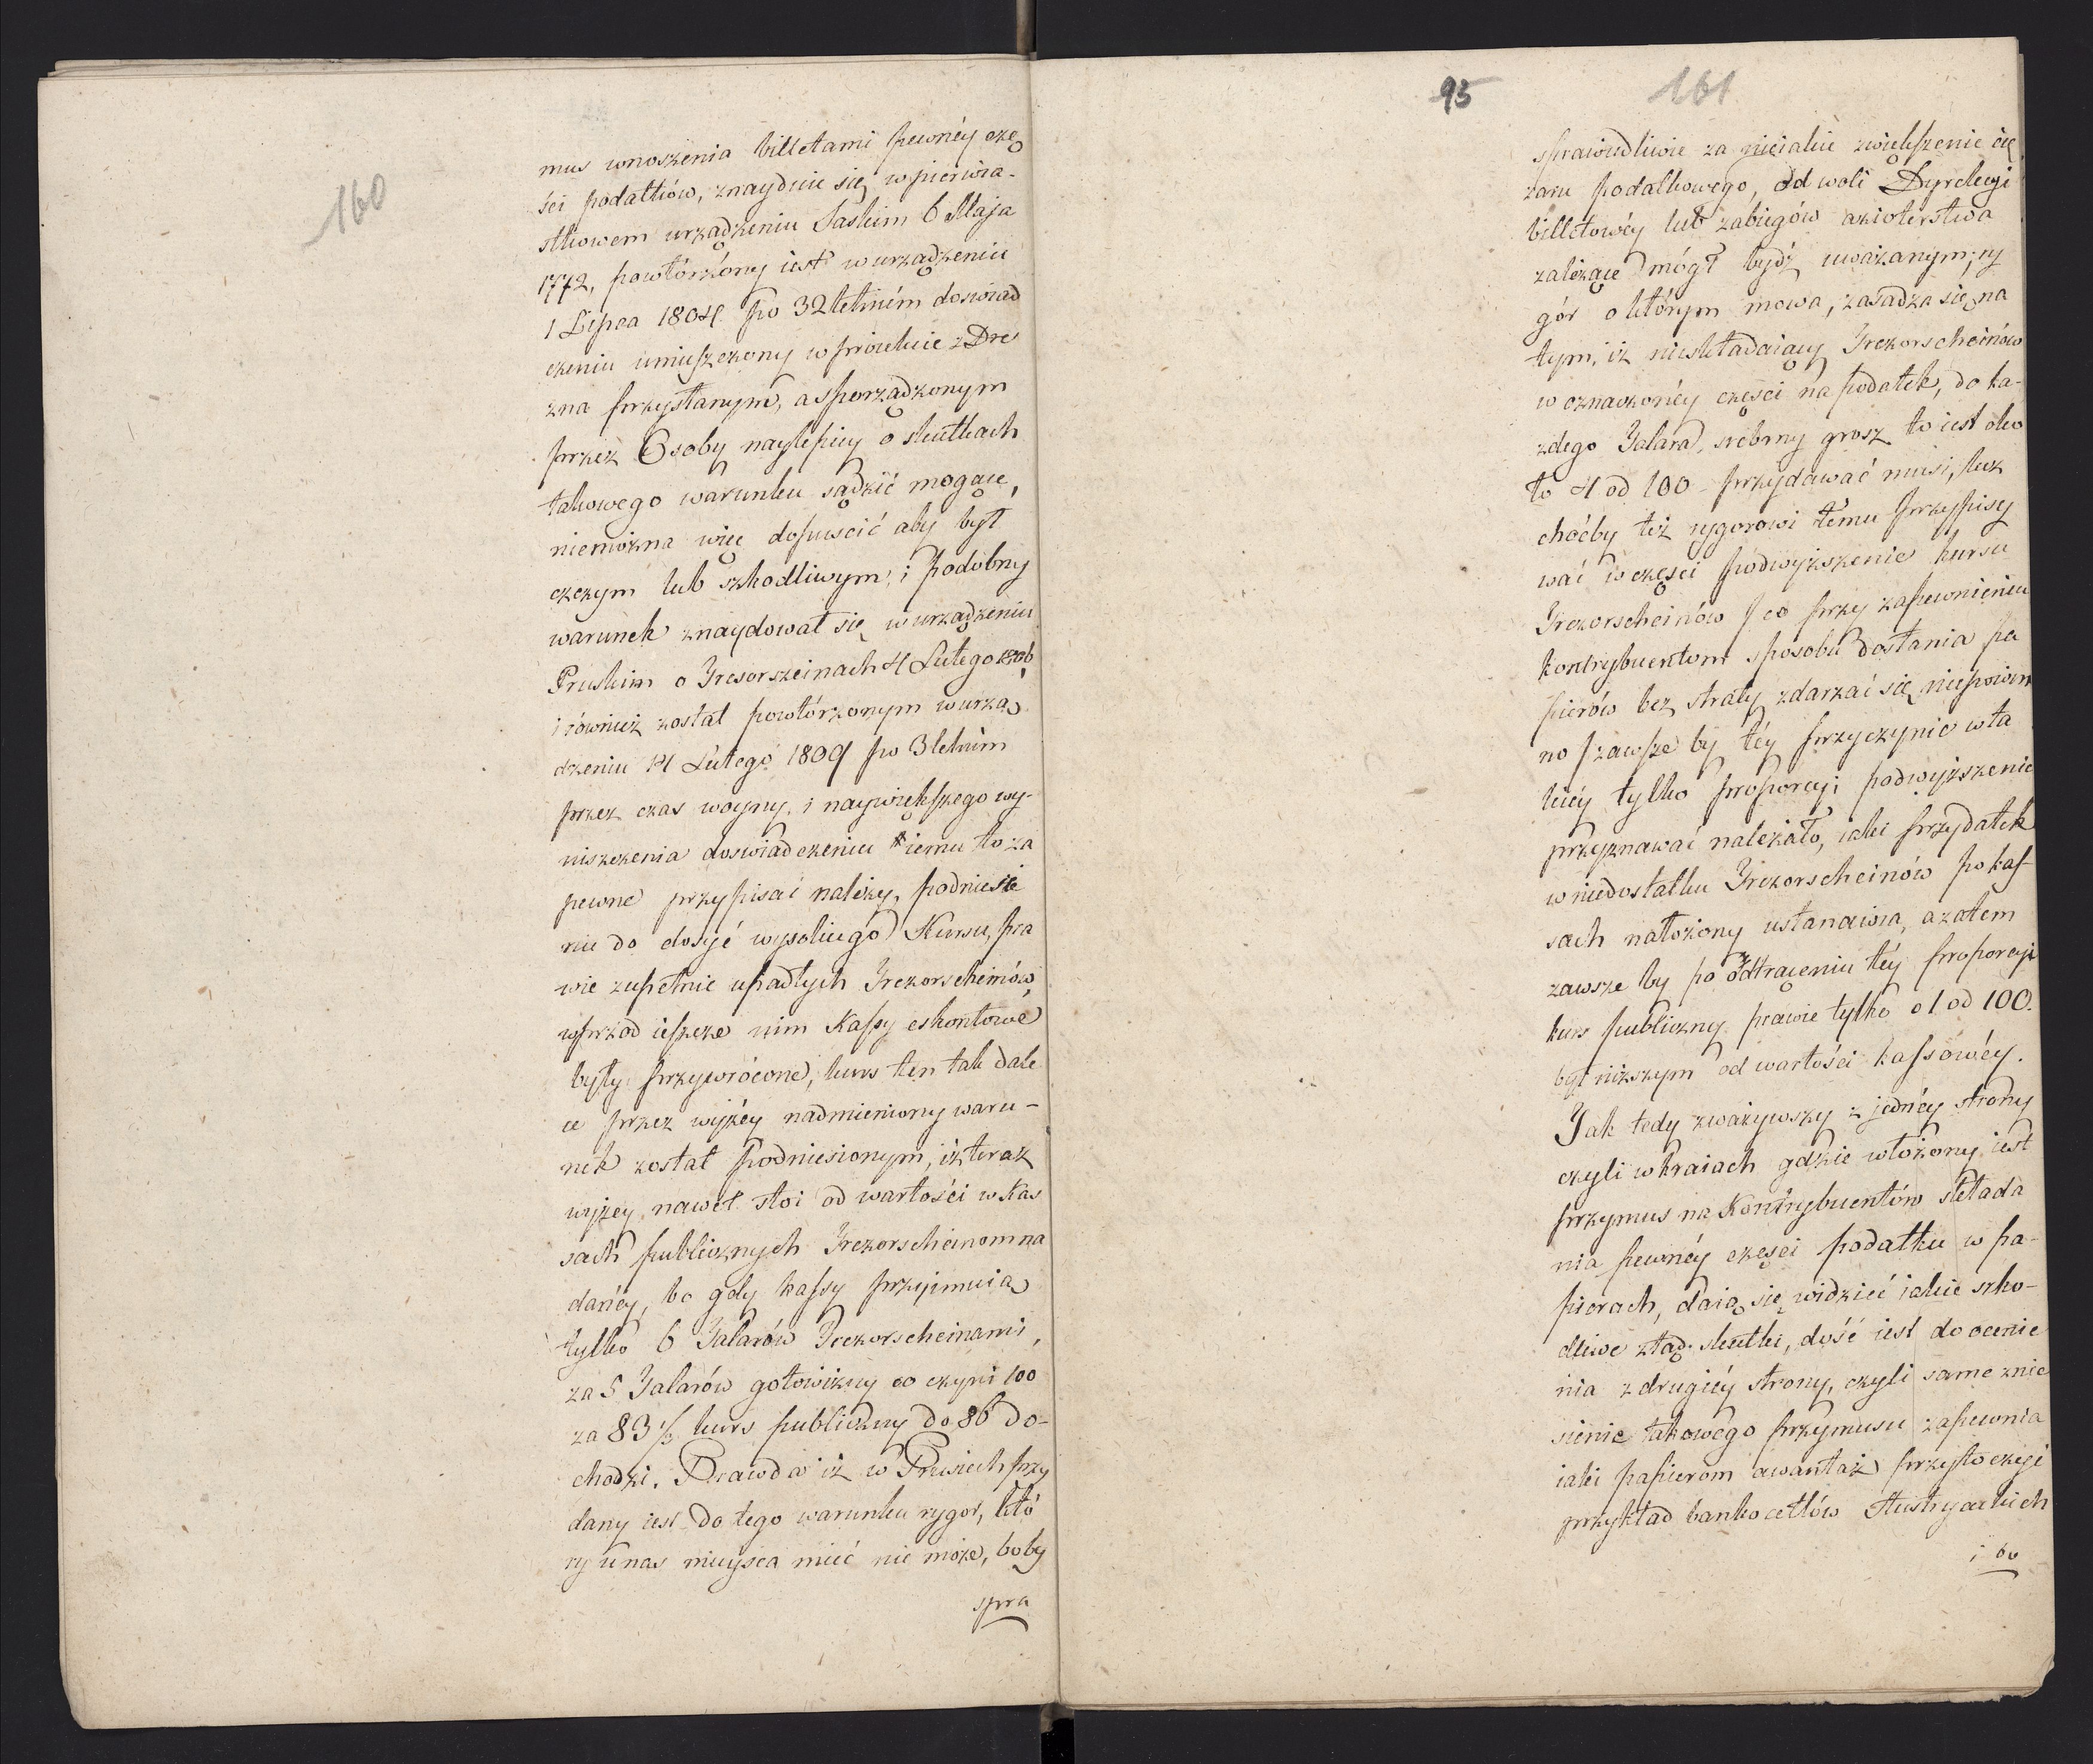 160
mus wnoszenia billetami pewnéy czę
ści podatków, znayduie się w pierwia-
stkowem urządzeniu Saskim 6 Maja
1772, powtórzony iest w urządzeniu
1 Lipca 1804 po 32 letniém doswiad
czeniu umieszczony w proiekcie z Dre
zna przysłanym, a sporządzonym
przez Osoby naylepiey o skutkach
takowego warunku sądzić mogące,
niemożna więc dopuscić aby był
czczym lub szkodliwym; podobny
warunek znaydował się w urządzeniu
Pruskim o Tresorszeinach 4 Lutego 1806
i również został powtórzonym w urzą
dzeniu 14 Lutego 1809 po 3 letnim
przez czas woyny, i naywiększego wy-
niszczenia doswiadczeniu iemu to za
pewne przypisać należy, podniesie
nie do dosyć wysokiego Kursu, pra
wie zupełnie upadłych Trezorscheinów,
wprzod ieszcze nim Kassy eskontowe
były przywrócone, kurs ten tak dale
ce przez wyżéy nadmieniony waru-
nek został podniesionym, iż teraz
wyżey nawet stoi od wartości w Kas
sach publicznych Trezorscheinom na
danéy, bo gdy kassy przyimuią
tylko 6 Talarów Trezorscheinami,
za 5 Talarów gotowizny co czyni 100
za 83 1/3 kurs publiczny do 86 do-
chodzi. Prawda iż w Prusiech przy
dany iest do tego warunku rygor, któ
ry u nas mieysca mieć nie może, boby
spra
95
161
sprawiedliwie za niestałe zwiększenie cię
żaru podatkowego, od woli Dyrekcyi
billetowéy lub zabiegów axioterstwa
zależące mógł bydź uważanym; ry
gór o którym mowa, zasadza się na
tym, iż nieskładaiący Trezorscheinów
w oznaczonéy części na podatek, do ka-
zdego Talara, srebrny grosz to iest oko
ło 4 od 100 przydawać musi, lecz
choćby też rygorowi temu przypisy
wać w części podwyższenie kursu
Trezorscheinów / co przy zapewnieniu
kontrybuentom sposobu dostania pa
pierów bez straty zdarzać się niepowin
no / zawsze by téy przyczynie w ta
kiéy tylko proporcyi podwyższenie
przyznawać należało, iaki przydatek
w niedostatku Trezorscheinów po kas-
sach nałożony ustanawia, a zatem
zawsze by po odtrąceniu téy proporcyi
kurs publiczny prawie tylko o 1 od 100.
był niższym od wartości kassowéy.
Jak tedy zważywszy z jednéy strony
czyli w kraiach gdzie włożony iest
przymus na Kontrybuentów składa
nia pewnéy części podatku w pa-
pierach, daią się widzieć iakie szko-
dliwe ztąd skutki, dość iest do ocenie
nia z drugiéy strony, czyli same znie
sienie takowego przymusu zapewnia
iaki papierom awantaż przytoczyć
przykład bankocetlów Austryackich
; bo